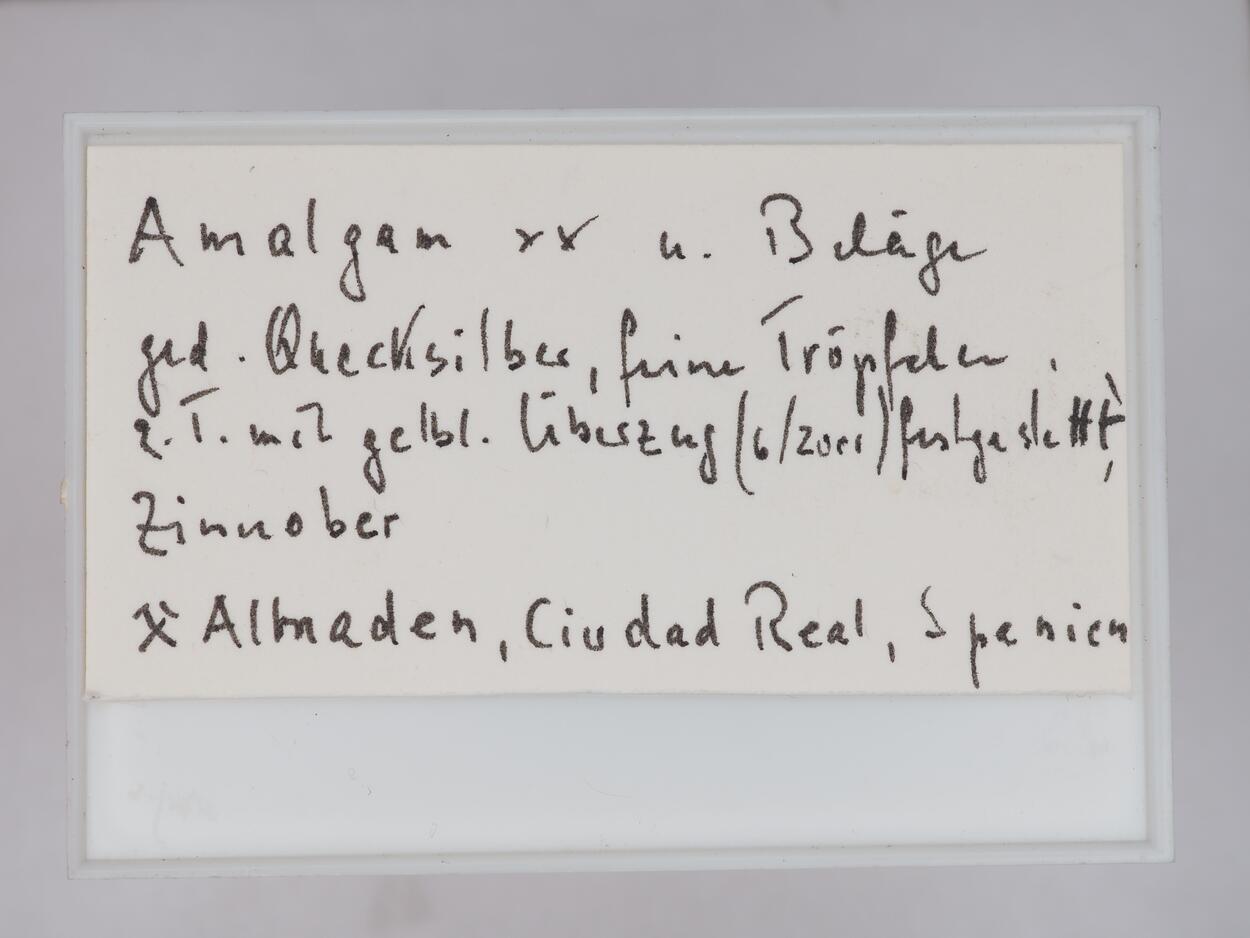 Amalgam xx u. Beläge
ged. Quecksilber, feine Tröpfchen.
z.T. mit gelbl. Überzug (6/2011) festgestellt,
Zinnober
X Almaden, Ciudad Real, Spanien